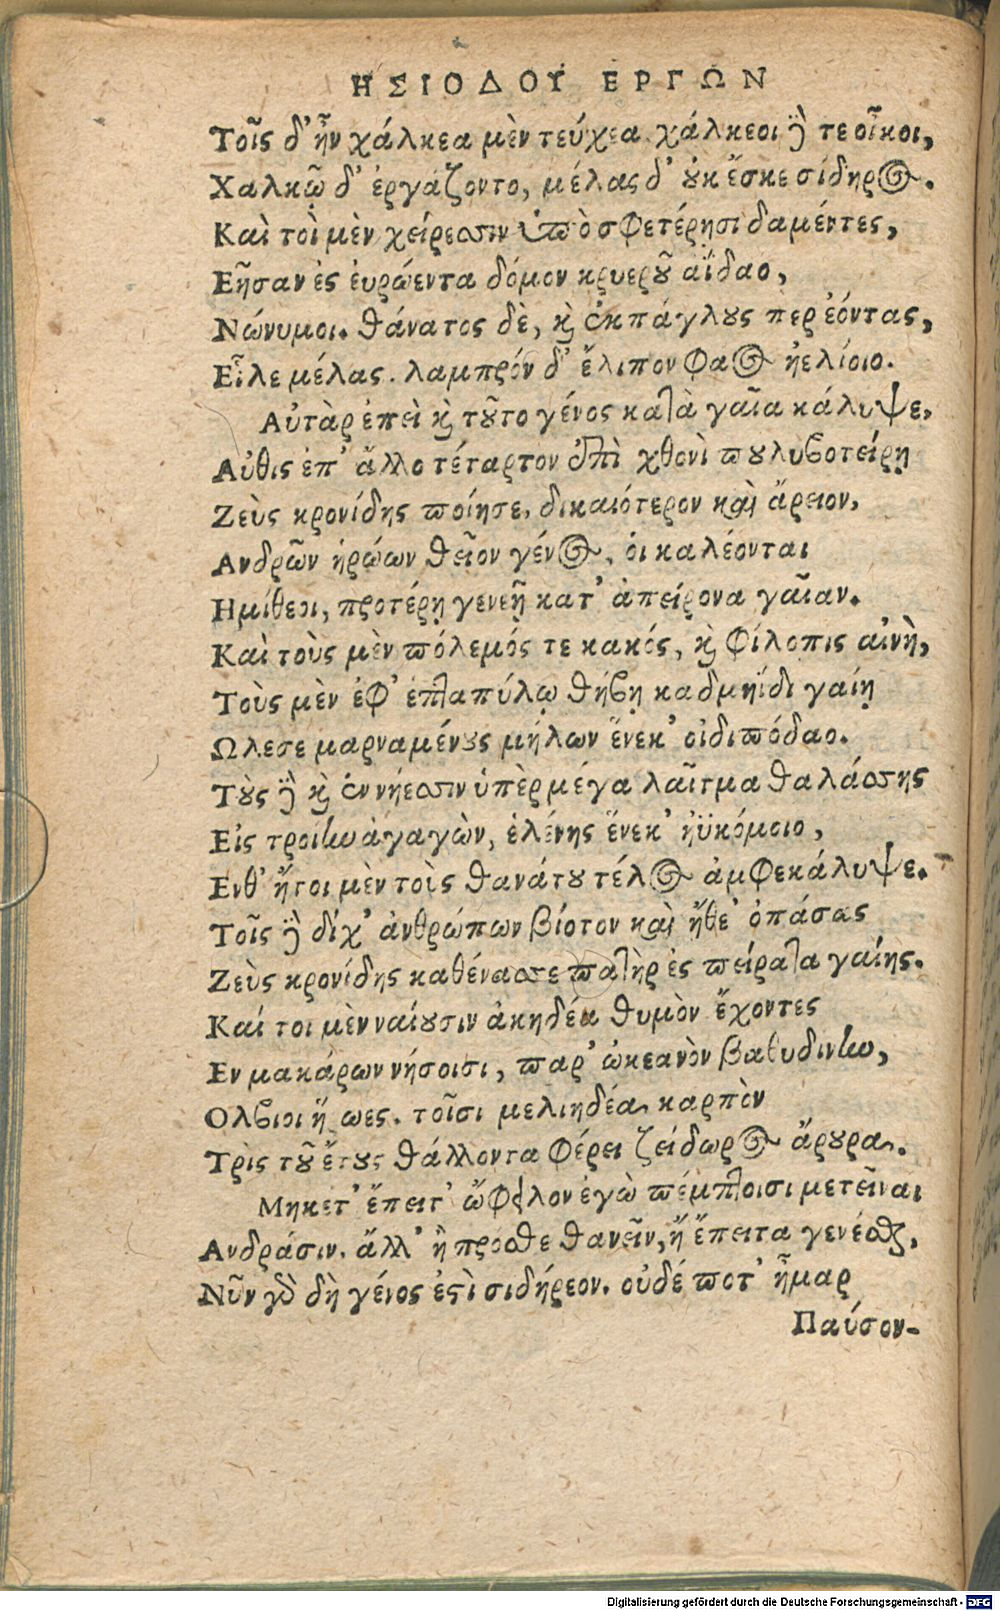 ΗΣΙΟΔΟΥ ΕΡΓΩΝ
Τοῖς δ' ἦν χάλκεα μὲν τεύχεα χάλκεοι δέ τε οἶκοι,
Χαλκῷ δ' ἐργάζοντο, μέλας δ' ουκ ἔσκε σίδηρος.
Καὶ τοὶ μὲν χείρεσσιν ὑπὸ σφετέρησι δαμέντες,
Εῆσαν ἐς ἐυρώεντα δόμον κρυεροῦ αΐδαο,
Νώνυμοι. θάνατος δὲ, καὶ ἐκπάγλους περ ἐόντας,
Εἷλε μέλας. λαμπρόν δ' ἔλιπον φαος ἠελίοιο.
Αὐτὰρ ἐπεὶ καὶ τοῦτο γένος κατὰ γαῖα κάλυψε,
Αὖθις ἐπ' ἄλλο τέταρτον ἐπὶ χθονὶ πουλυβοτείρῃ
Ζεὺς κρονίδης ποίησε, δικαιότερον καὶ ἄρειον,
Ανδρῶν ἡρώων θεῖον γένος, ὁι καλέονται
Ημίθεοι, προτέρῃ γενεῇ κατ' ἀπείρονα γαῖαν.
Καὶ τοὺς μὲν πόλεμός τε κακός, καὶ φίλοπις αἰνὴ,
Τοὺς μὲν ἐφ' ἑπταπύλῳ θήβῃ καδμηΐδι γαίῃ
Ωλεσε μαρναμένους μήλων ἕνεκ' οἰδιπόδαο.
Τοὺς δὲ καὶ ἐν νήεσσιν ὑπὲρ μέγα λαῖτμα θαλάσσης
Εἰς τροίην ἀγαγὼν, ἑλένης ἕνεκ' ἠϋκόμοιο,
Ενθ' ἤτοι μὲν τοὺς θανάτου τέλος ἀμφεκάλυψε.
Τοῖς δὲ δίχ' ἀνθρώπων βίοτον καὶ ἤθε' ὀπάσας
Ζεὺς κρονίδης καθένασσε πατὴρ ἐς πείρατα γαίης.
Καί τοι μὲν ναίουσιν ἀκηδέα θυμὸν ἔχοντες
Εν μακάρων νήσοισι, παρ' ὠκεανὸν βαθυδίνην,
Ολβιοι ἥρωες. τοῖσι μελιηδέα καρπὸν
Τρὶς τοῦ ἔτους θάλλοντα φέρει ζείδωρος ἄρουρα.
Μηκετ' ἔπειτ' ὤφειλον ἐγὼ πέμπτοισι μετεῖναι
Ανδράσιν. ἄλλ' ἢ πρόσθε θανεῖν, ἤ ἔπειτα γενέσθαι,
Νῦν γὰρ δὴ γένος ἐστὶ σιδήρεον. οὐδέ ποτ' ἦμαρ
Παύσον-
Digitalisierung gefördert durch die Deutsche Forschungsgemeinschaft - DFG